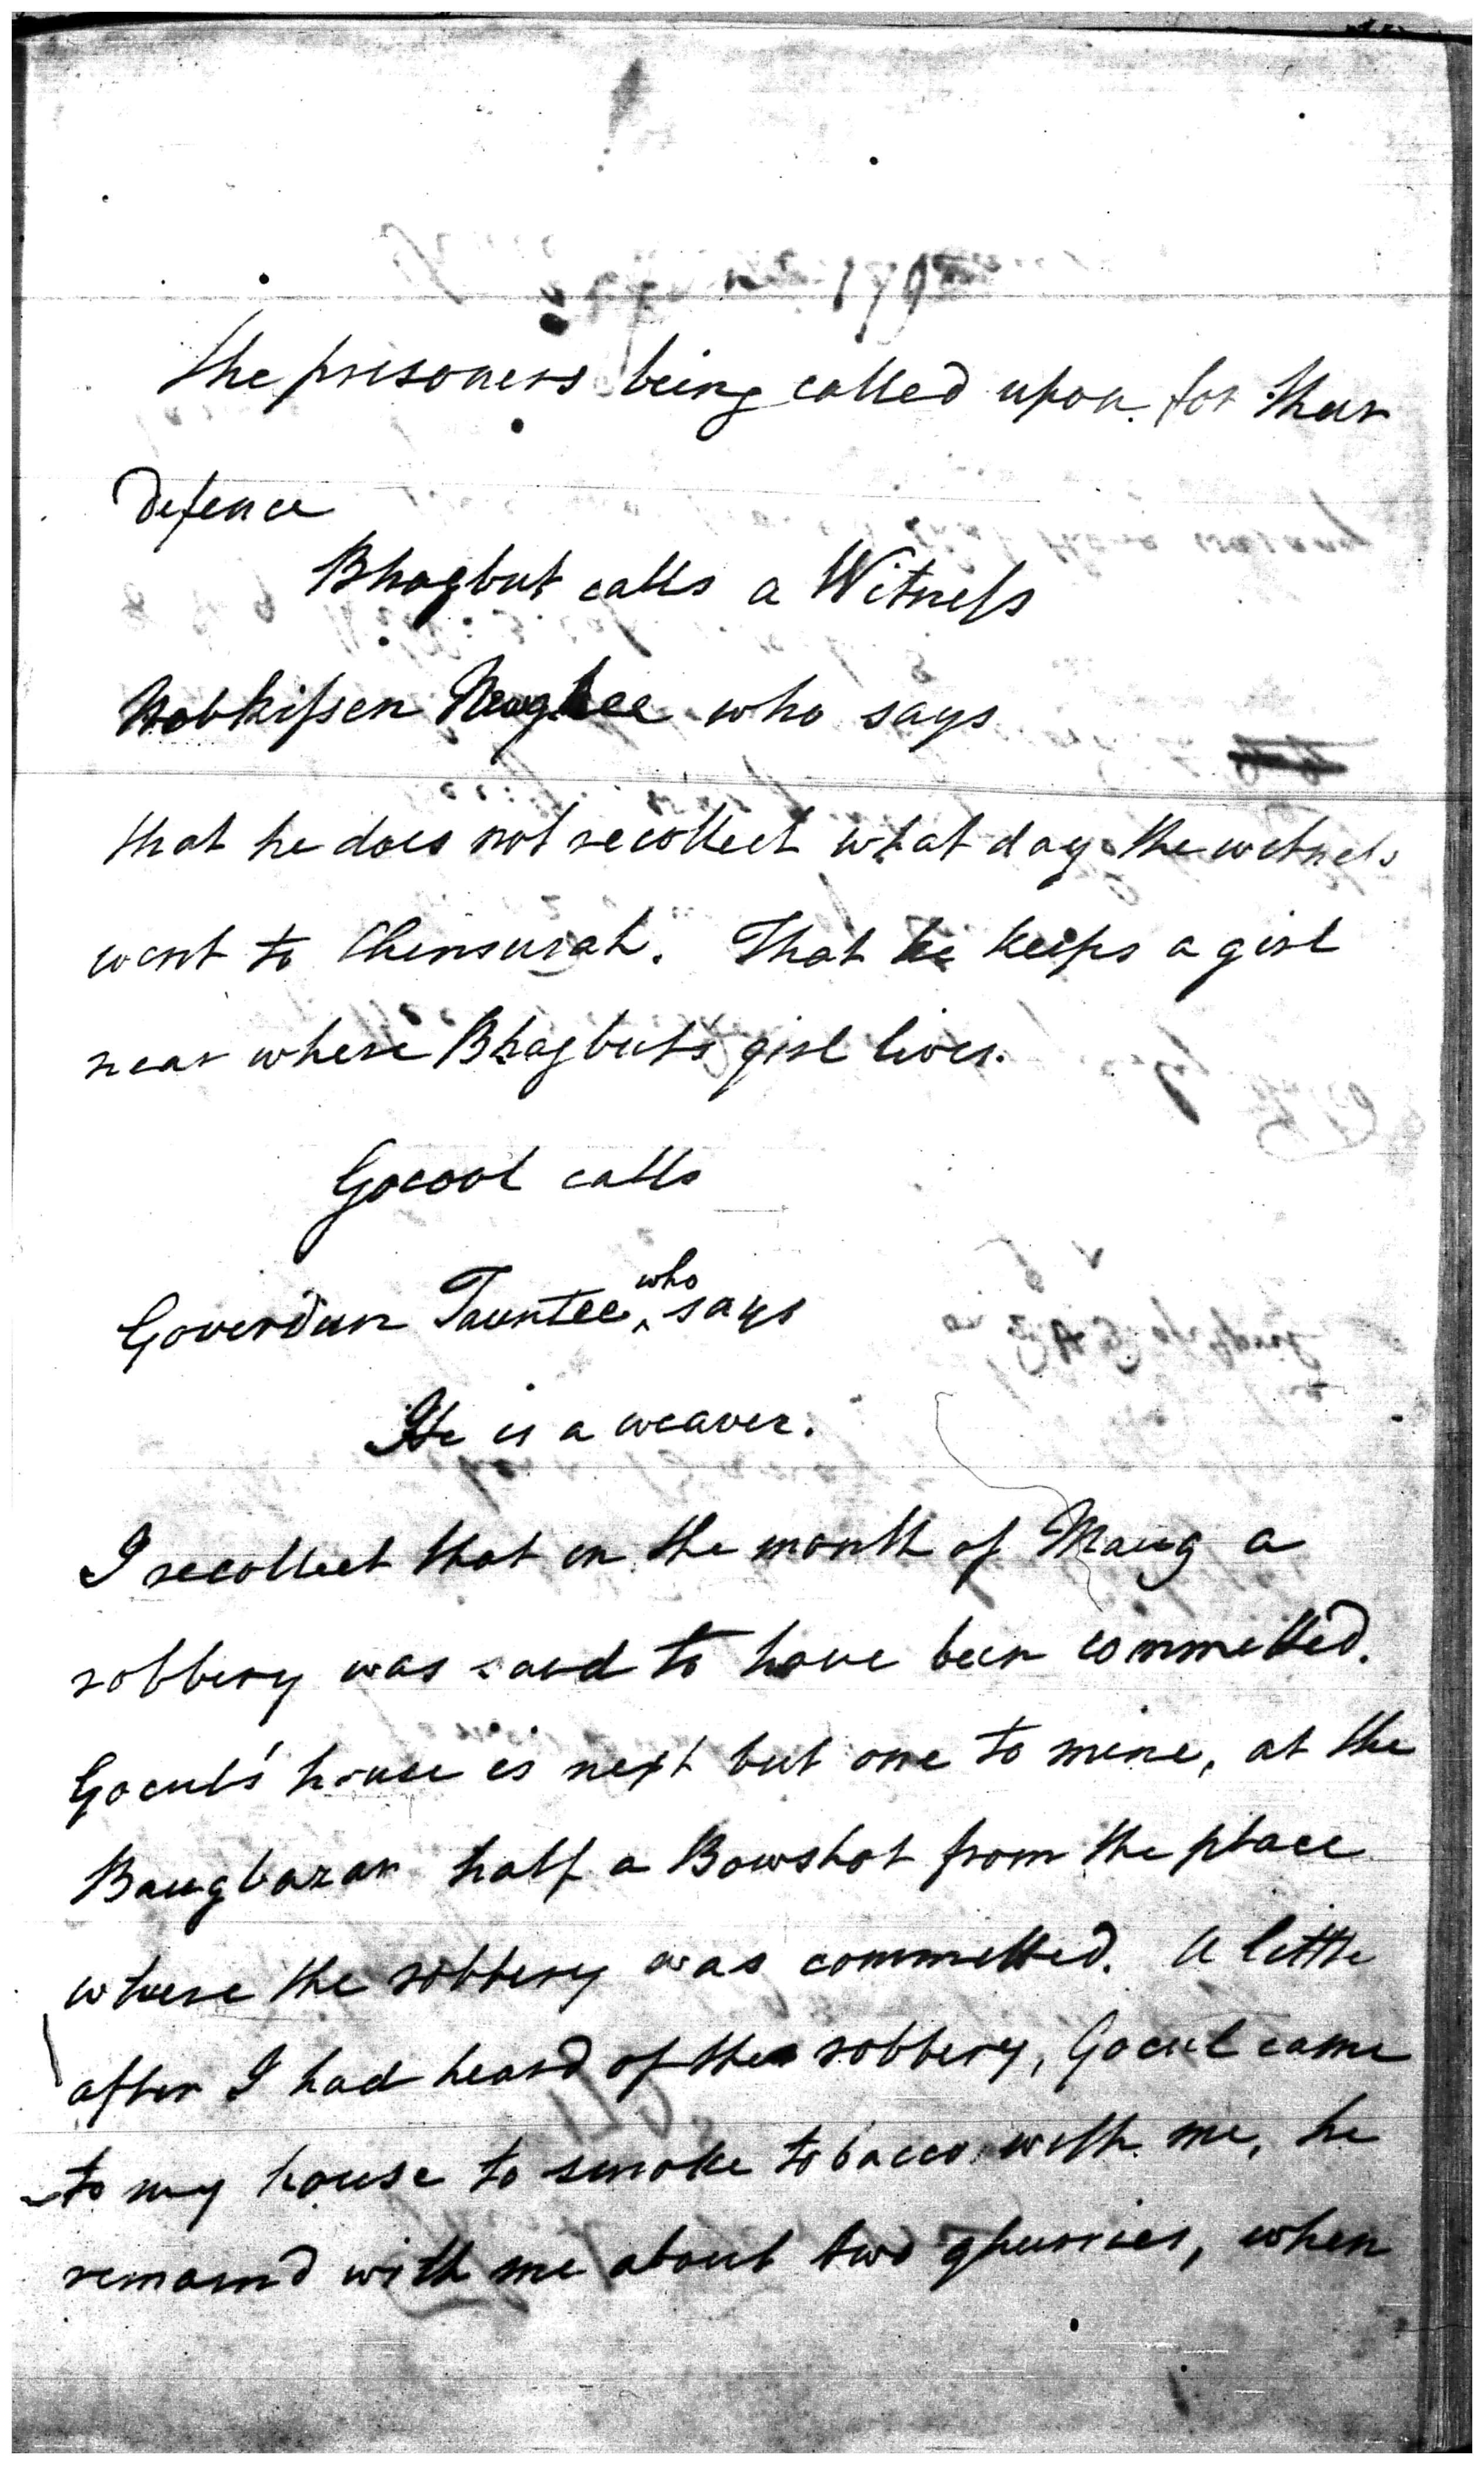 The prisoners being called upon for their
Defence
Bhagbut calls a Witness
Nobkissen who says
that he does not recollect what day the witness
went to Chensurah. That he keeps a girl
near where Bhagbut's girl lives.
Gocool calls
Goverdun Tauntee who says
He is a weaver.
I recollect that in the month of Maug a
robbery was said to have been committed.
Gocul's house is next but one to mine, at the
Baugbazar half a Bowshot from the place
where the robbery was committed. A little
after I had heard of the robbery, Gocul came
to my house to smoke tobacco with me, he
remaind with me about two ghurries, when